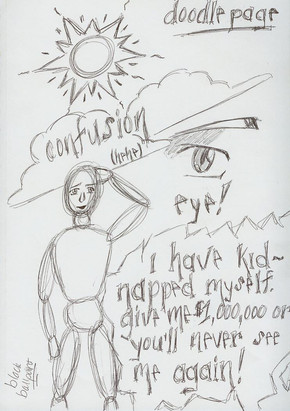 doodle page
confusion
(hehe)
eye!
I have kid-
napped myself.
give me $1,000,000 or
you'll never see
me again!
black
ballpoint